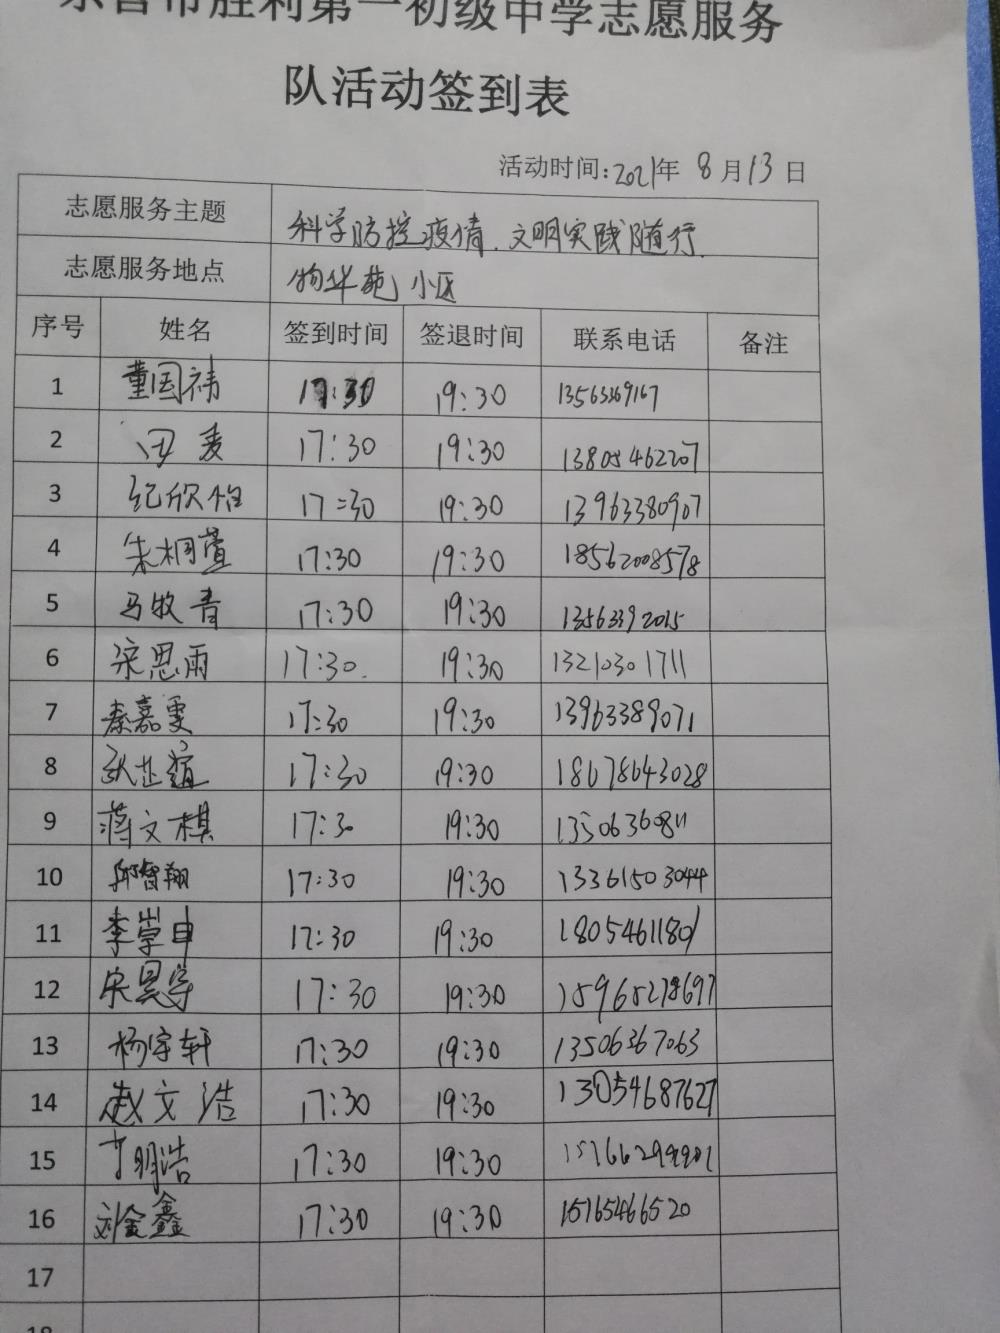 东营市胜利第一初级中学志愿服务
队活动签到表
活动时间:2021年 8月13日
志愿服务主题 科学防控疫情.文明实践随行.
志愿服务地点 物华苑小区
序号 姓名 签到时间 签退时间 联系电话 备注
1 董国祎 17:30 19:30
2 麦 17:30 19:30 13805462207
3 纪欣怡 17:30 19:30 13963380907
4 朱桐萱 17:30 19:30 18562008578
5 马牧青 17:30 19:30 13563392015
6 宋思雨 17:30. 19:30 13210301711
7 秦嘉雯 17:30 19:30 13963389071
8 17:30 19:30 18678643028
9 蒋文棋 17:30 19:30
10 邱智翔 17:30 19:30 13361503044
11 李崇申 17:30 19:30 18054611801
12 宋昊宇 17:30 19:30 15965278697
13 杨宇轩 17:30 19:30 13506367063
14 赵文浩 17:30 19:30 13054687627
15 丁明浩 17:30 19:30
16 刘金鑫 17:30 19:30 15765466520
17
18